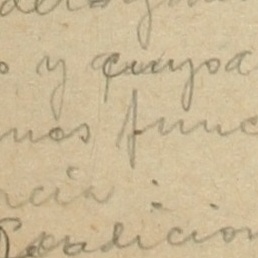 o y cuyoa
nos func
ncia:
Condicion